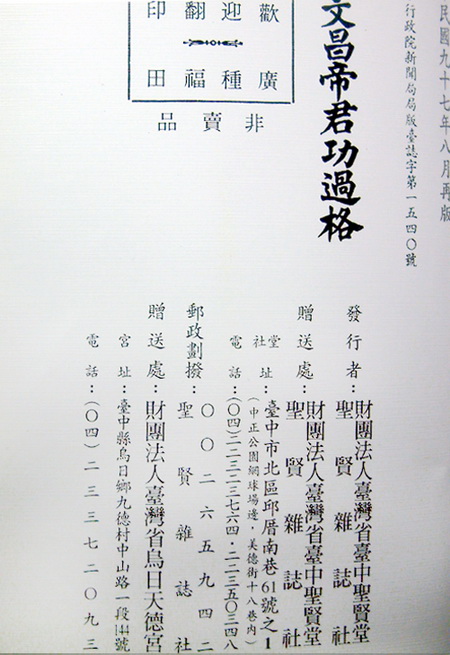 民國九十七年八月再版
行政院新聞局局版臺誌字第一五四〇號
文昌帝君功過格
歡迎翻印
廣種福田
非賣品
發行者：財團法人臺灣省臺中聖賢堂
聖賢雜誌社
贈送處：財團法人臺灣省臺中聖賢堂
聖賢雜誌社
堂社址：臺中市北區邱厝南巷61號之1
（中正公園網球場邊，美德街十八巷內）
電話：（〇四）二二三二三七六四・二二三五〇三四八
郵政劃撥：〇〇二六五九四二
聖賢雜誌社
贈送處：財團法人臺灣省烏日天德宮
宮址：臺中縣烏日鄉九德村中山路一段144號
電話：（〇四）二三三七二〇九三